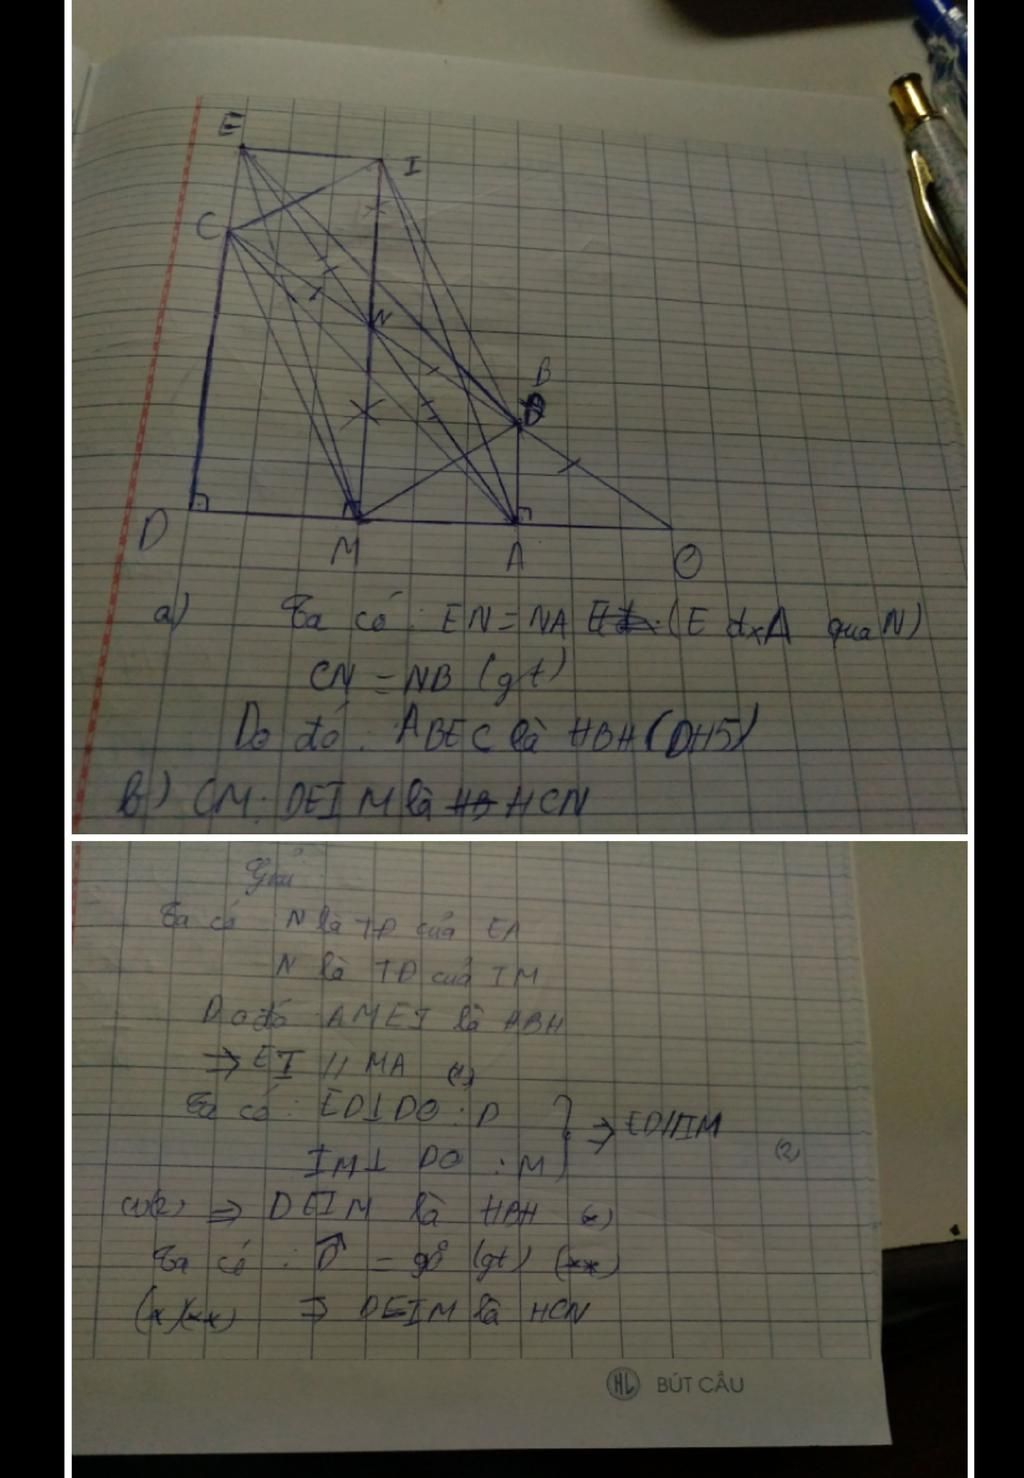 E
I
C
N
B
D
M
A
O
a) Ta có : EN = NA (E đx A qua N)
CN = NB (gt)
Do đó : ABEC là HBH (DH5)
b) CM : DEIM là HCN
Giải
Ta có N là TĐ của EA
N là TĐ của IM
Do đó AMEI là HBH
⇒ EI // MA (1)
Ta có : ED ⊥ DO : D
⇒ ED // IM (2)
IM ⊥ DO : M
(1)(2) ⇒ DEIM là HBH (*)
Ta có : D̂ = 90° (gt) (**)
(*)(**) ⇒ DEIM là HCN
HL BÚT CẦU